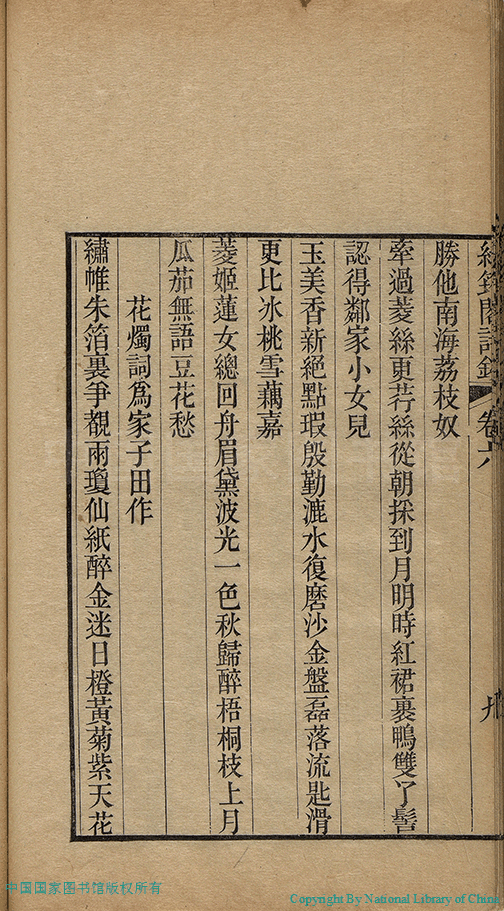 詩鈔 卷六 九
勝他南海荔枝奴
牽過菱絲更荇絲從朝採到月明時紅裙裹鴨雙丫髻
認得鄰家小女兒
玉美香新絕點瑕殷勤漉水復磨沙金盤磊落流匙滑
更比冰桃雪藕嘉
菱姬蓮女總回舟眉黛波光一色秋歸醉梧桐枝上月
瓜茄無語豆花愁
花燭詞為家子田作
繡帷朱箔裏爭覩雨瓊仙紙醉金迷日橙黃菊紫天花
中国国家图书馆版权所有
Copyright By National Library of China